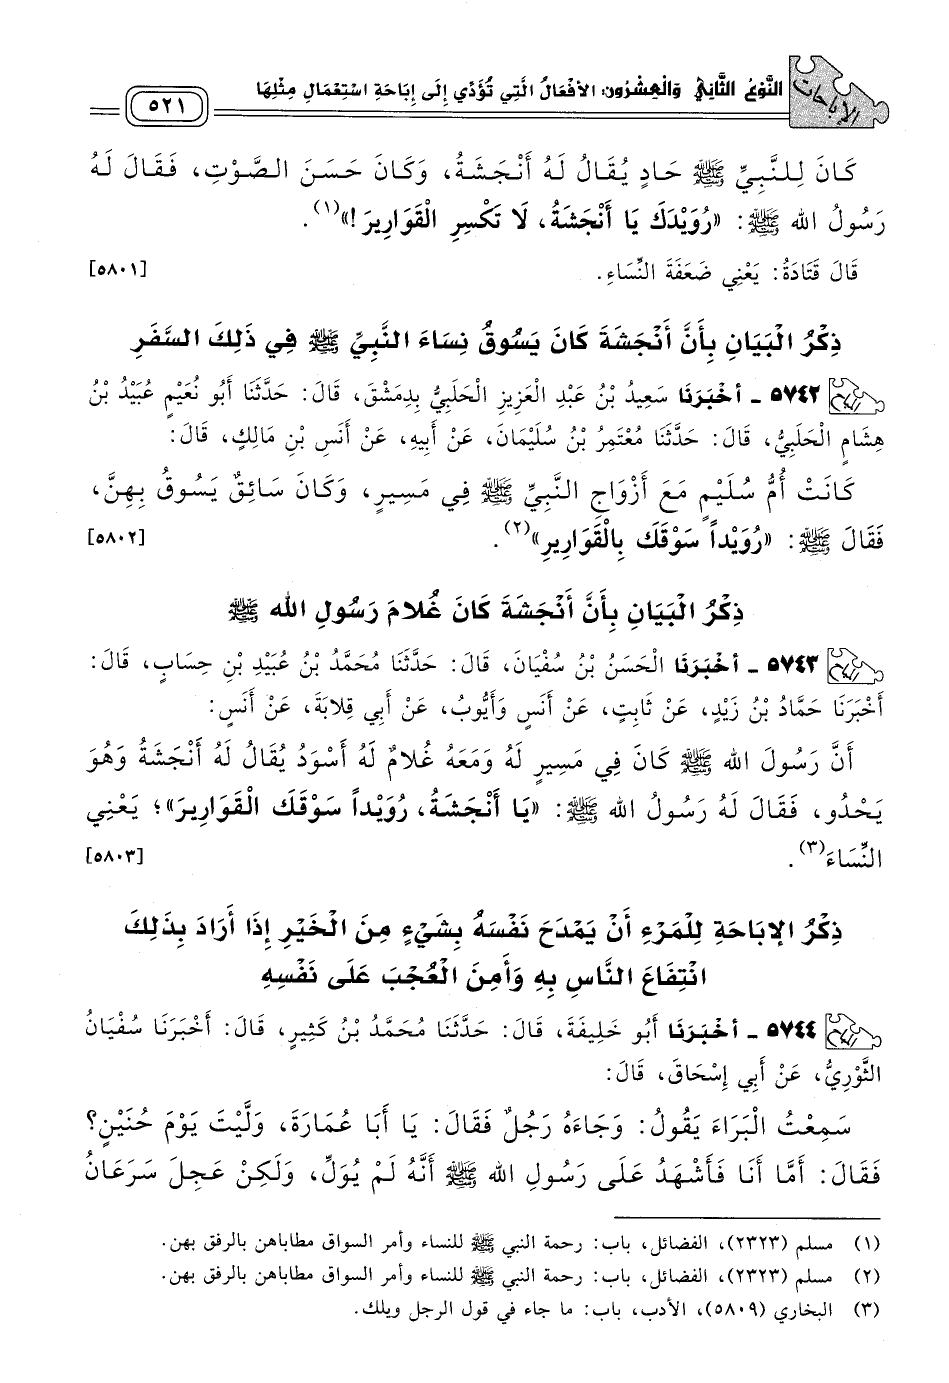 الإباحات
النَّوْعُ الثَّانِي وَالْعِشْرُونَ: الأَفْعَالُ الَّتِي تُؤَدِّي إِلَى إِبَاحَةِ اسْتِعْمَالِ مِثْلِهَا
٥٢١
كَانَ لِلنَّبِيِّ ﷺ حَادٍ يُقَالُ لَهُ أَنْجَشَةُ، وَكَانَ حَسَنَ الصَّوْتِ، فَقَالَ لَهُ
رَسُولُ الله ﷺ: «رُوَيْدَكَ يَا أَنْجَشَةُ، لَا تَكْسِرِ الْقَوَارِيرَ!»(١).
قَالَ قَتَادَةُ: يَعْنِي ضَعَفَةَ النِّسَاءِ. [٥٨٠١]
ذِكْرُ الْبَيَانِ بِأَنَّ أَنْجَشَةَ كَانَ يَسُوقُ نِسَاءَ النَّبِيِّ ﷺ فِي ذَلِكَ السَّفَرِ
٥٧٤٢ - أخْبَرَنَا سَعِيدُ بْنُ عَبْدِ الْعَزِيزِ الْحَلَبِيُّ بِدِمَشْقَ، قَالَ: حَدَّثَنَا أَبُو نُعَيْمٍ عُبَيْدُ بْنُ
هِشَامٍ الْحَلَبِيُّ، قَالَ: حَدَّثَنَا مُعْتَمِرُ بْنُ سُلَيْمَانَ، عَنْ أَبِيهِ، عَنْ أَنَسِ بْنِ مَالِكٍ، قَالَ:
كَانَتْ أُمُّ سُلَيْمٍ مَعَ أَزْوَاجِ النَّبِيِّ ﷺ فِي مَسِيرٍ، وَكَانَ سَائِقٌ يَسُوقُ بِهِنَّ،
فَقَالَ ﷺ: «رُوَيْداً سَوْقَكَ بِالْقَوَارِيرِ»(٢). [٥٨٠٢]
ذِكْرُ الْبَيَانِ بِأَنَّ أَنْجَشَةَ كَانَ غُلَامَ رَسُولِ الله ﷺ
٥٧٤٣ - أخْبَرَنَا الْحَسَنُ بْنُ سُفْيَانَ، قَالَ: حَدَّثَنَا مُحَمَّدُ بْنُ عُبَيْدِ بْنِ حِسَابٍ، قَالَ:
أَخْبَرَنَا حَمَّادُ بْنُ زَيْدٍ، عَنْ ثَابِتٍ، عَنْ أَنَسٍ وَأَيُّوبَ، عَنْ أَبِي قِلَابَةَ، عَنْ أَنَسٍ:
أَنَّ رَسُولَ الله ﷺ كَانَ فِي مَسِيرٍ لَهُ وَمَعَهُ غُلَامٌ لَهُ أَسْوَدُ يُقَالُ لَهُ أَنْجَشَةُ وَهُوَ
يَحْدُو، فَقَالَ لَهُ رَسُولُ الله ﷺ: «يَا أَنْجَشَةُ، رُوَيْداً سَوْقَكَ الْقَوَارِيرَ»؛ يَعْنِي
النِّسَاءَ(٣). [٥٨٠٣]
ذِكْرُ الإبَاحَةِ لِلْمَرْءِ أَنْ يَمْدَحَ نَفْسَهُ بِشَيْءٍ مِنَ الْخَيْرِ إِذَا أَرَادَ بِذَلِكَ
انْتِفَاعَ النَّاسِ بِهِ وَأَمِنَ الْعُجْبَ عَلَى نَفْسِهِ
٥٧٤٤ - أخْبَرَنَا أَبُو خَلِيفَةَ، قَالَ: حَدَّثَنَا مُحَمَّدُ بْنُ كَثِيرٍ، قَالَ: أَخْبَرَنَا سُفْيَانُ
الثَّوْرِيُّ، عَنْ أَبِي إِسْحَاقَ، قَالَ:
سَمِعْتُ الْبَرَاءَ يَقُولُ: وَجَاءَهُ رَجُلٌ فَقَالَ: يَا أَبَا عُمَارَةَ، وَلَّيْتَ يَوْمَ حُنَيْنٍ؟
فَقَالَ: أَمَّا أَنَا فَأَشْهَدُ عَلَى رَسُولِ الله ﷺ أَنَّهُ لَمْ يُوَلِّ، وَلَكِنْ عَجِلَ سَرَعَانُ
(١) مسلم (٢٣٢٣)، الفضائل، باب: رحمة النبي ﷺ للنساء وأمر السواق مطاباهن بالرفق بهن.
(٢) مسلم (٢٣٢٣)، الفضائل، باب: رحمة النبي ﷺ للنساء وأمر السواق مطاباهن بالرفق بهن.
(٣) البخاري (٥٨٠٩)، الأدب، باب: ما جاء في قول الرجل ويلك.